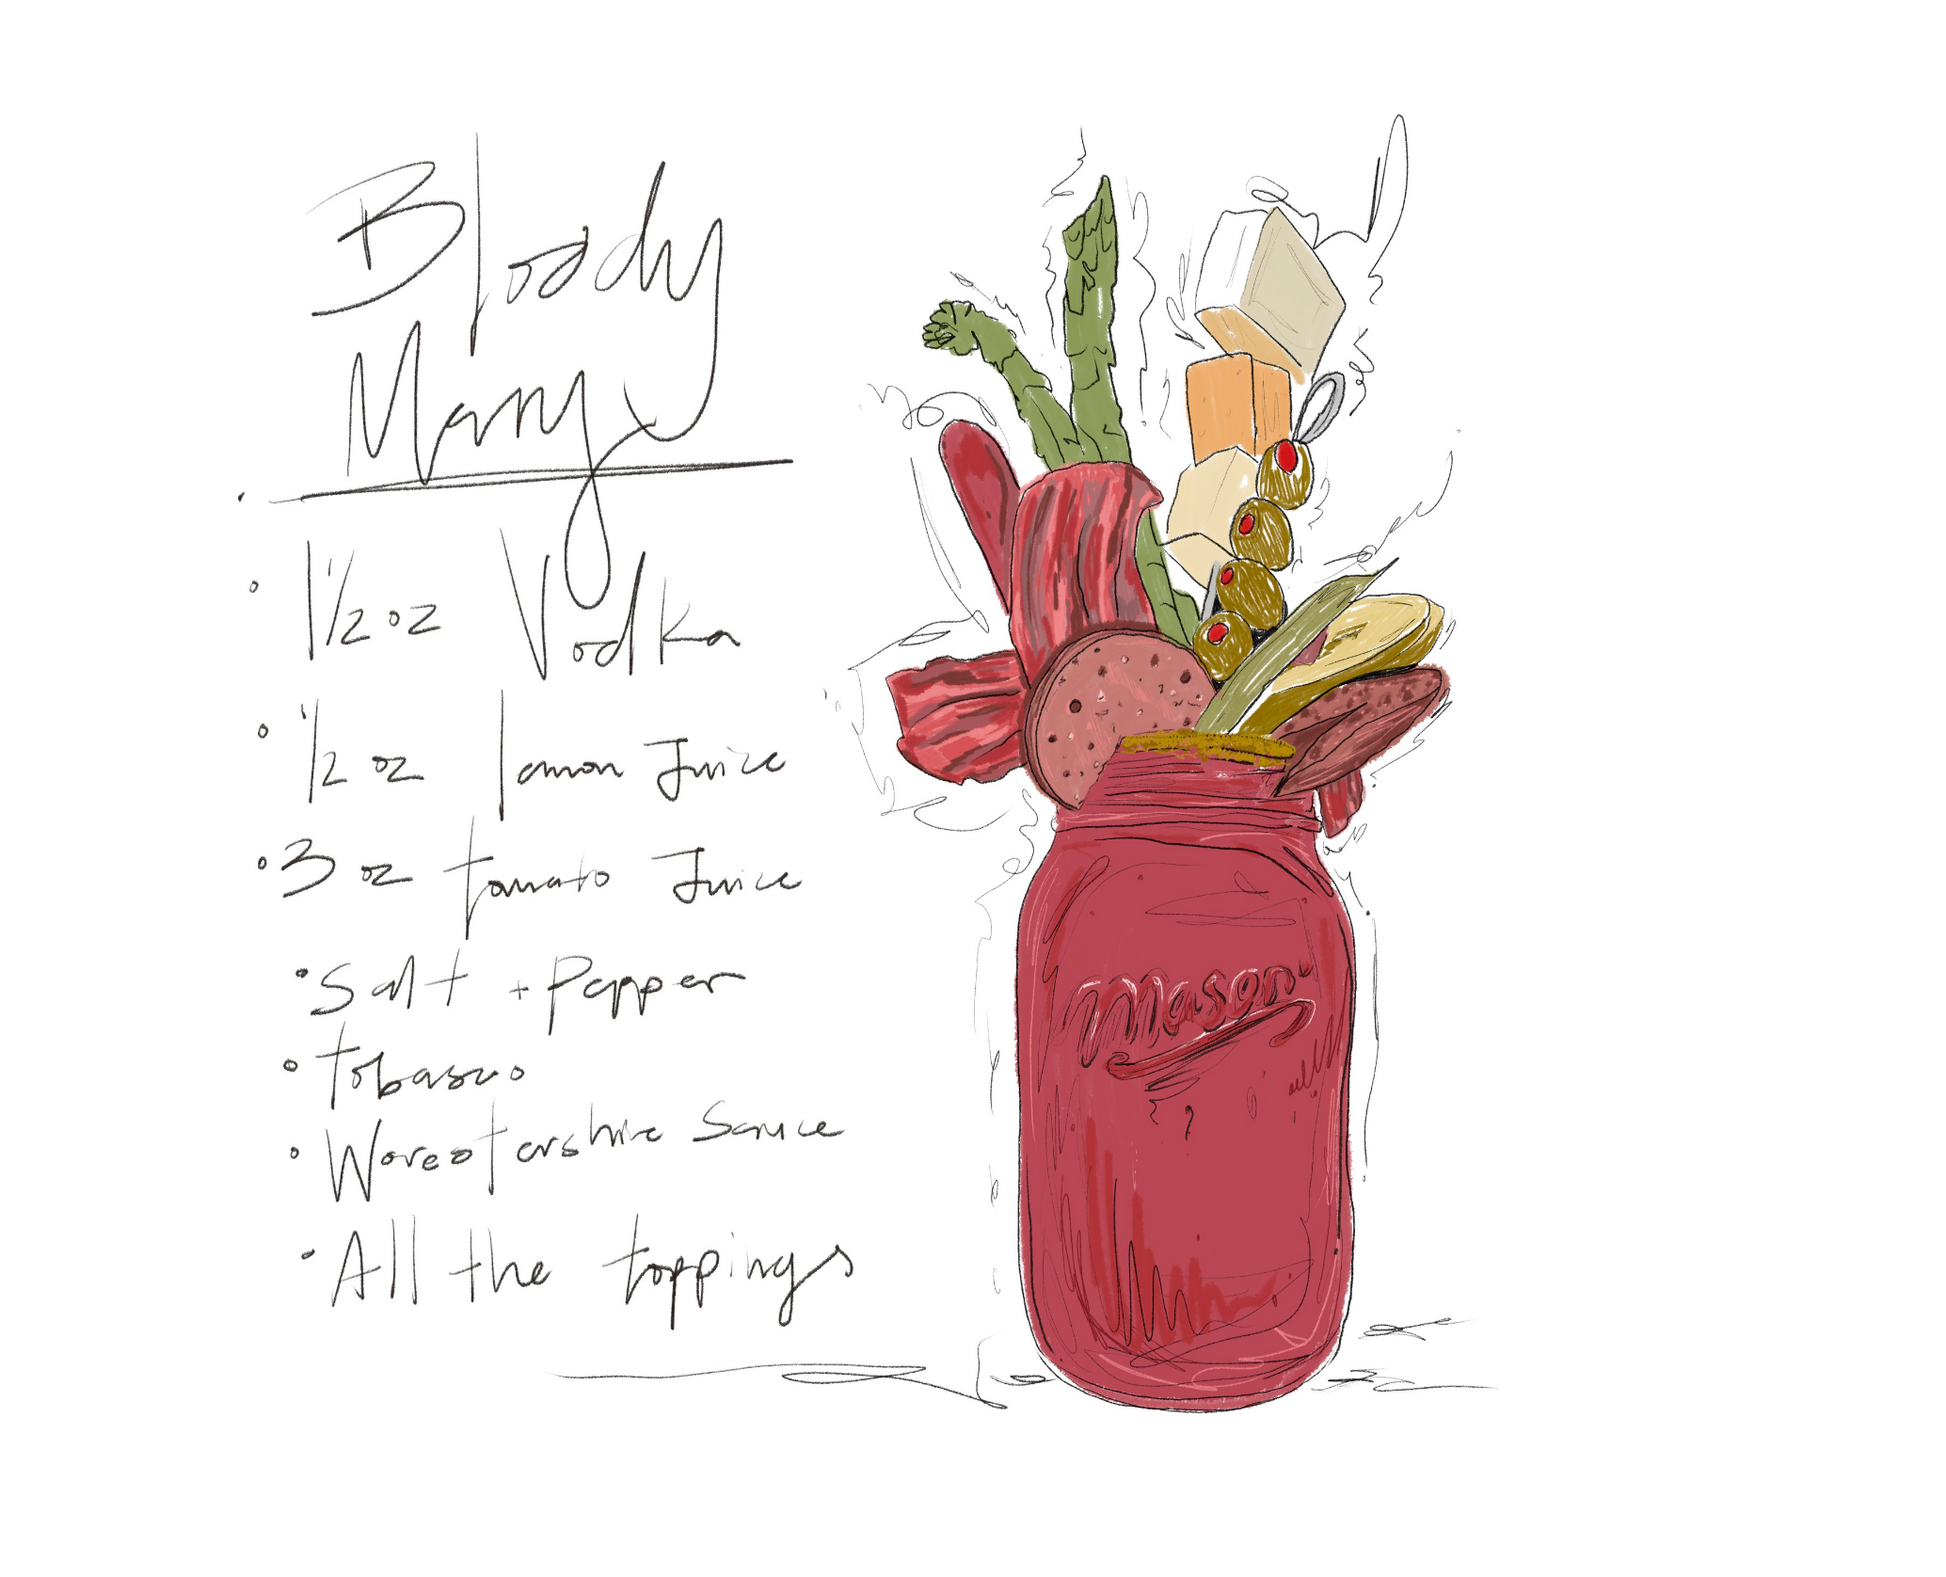 Bloody
Mary
• 1 1/2 oz Vodka
• 1/2 oz lemon Juice
• 3 oz tomato Juice
• Salt + Pepper
• Tobasco
• Worcestershire Sauce
• All the toppings
Mason